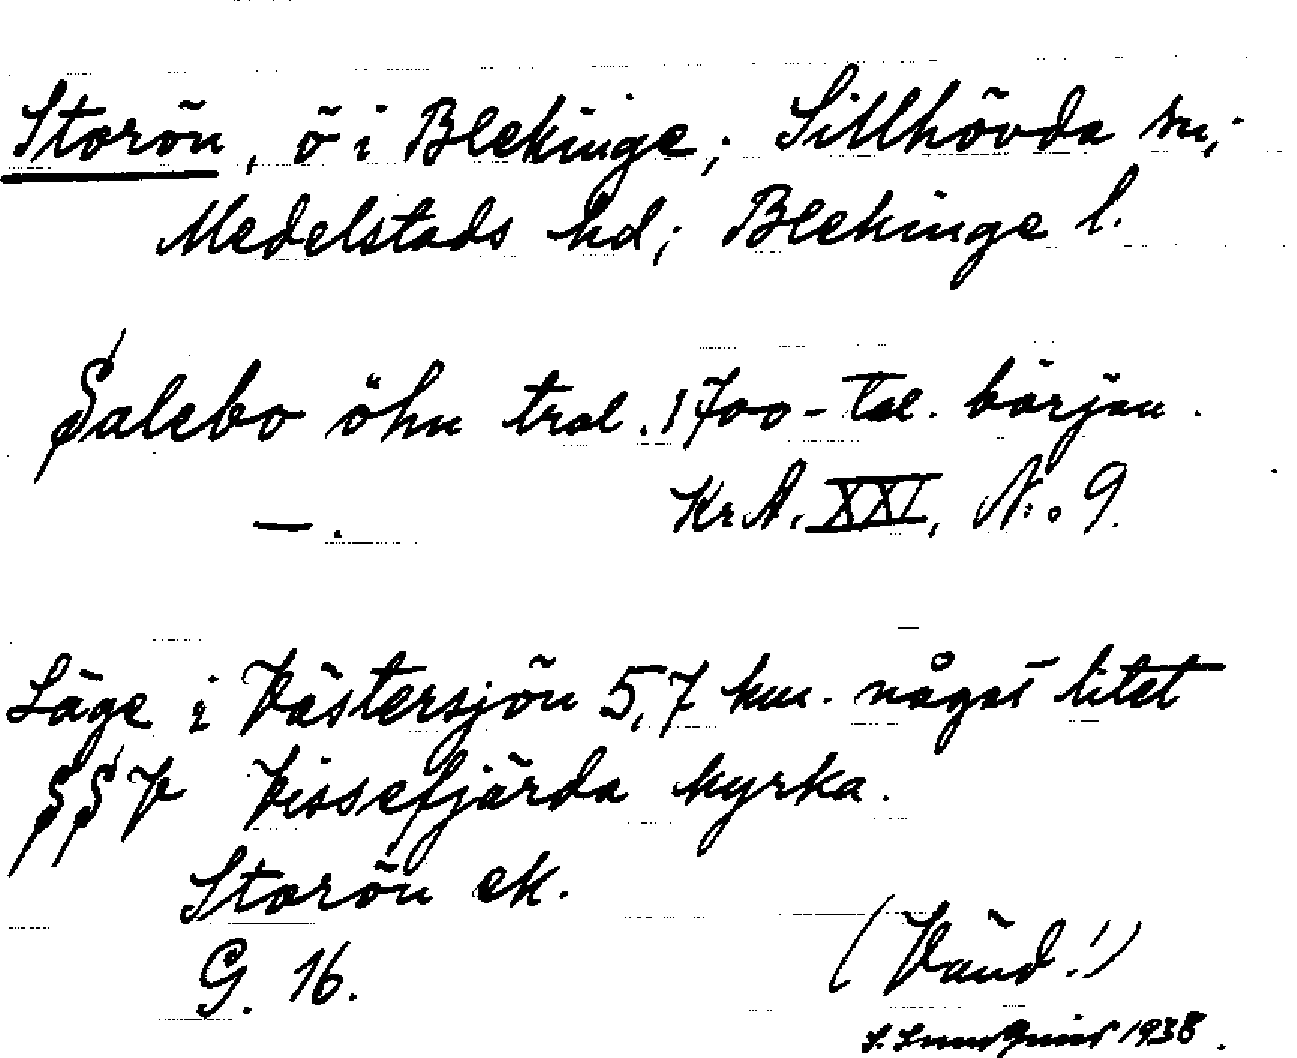 Storön, ö i Blekinge; Sillhövda sn;
Medelstads hd; Blekinge l.
Salebo öhn trol. 1700-tal. början.
—. Kr. A. XXI, No 9.
Läge i Västersjön 5,7 km. något litet
SSV Vissefjärda kyrka.
Storön ek.
G. 16.
(Vänd!)
S. Lundquist 1938.